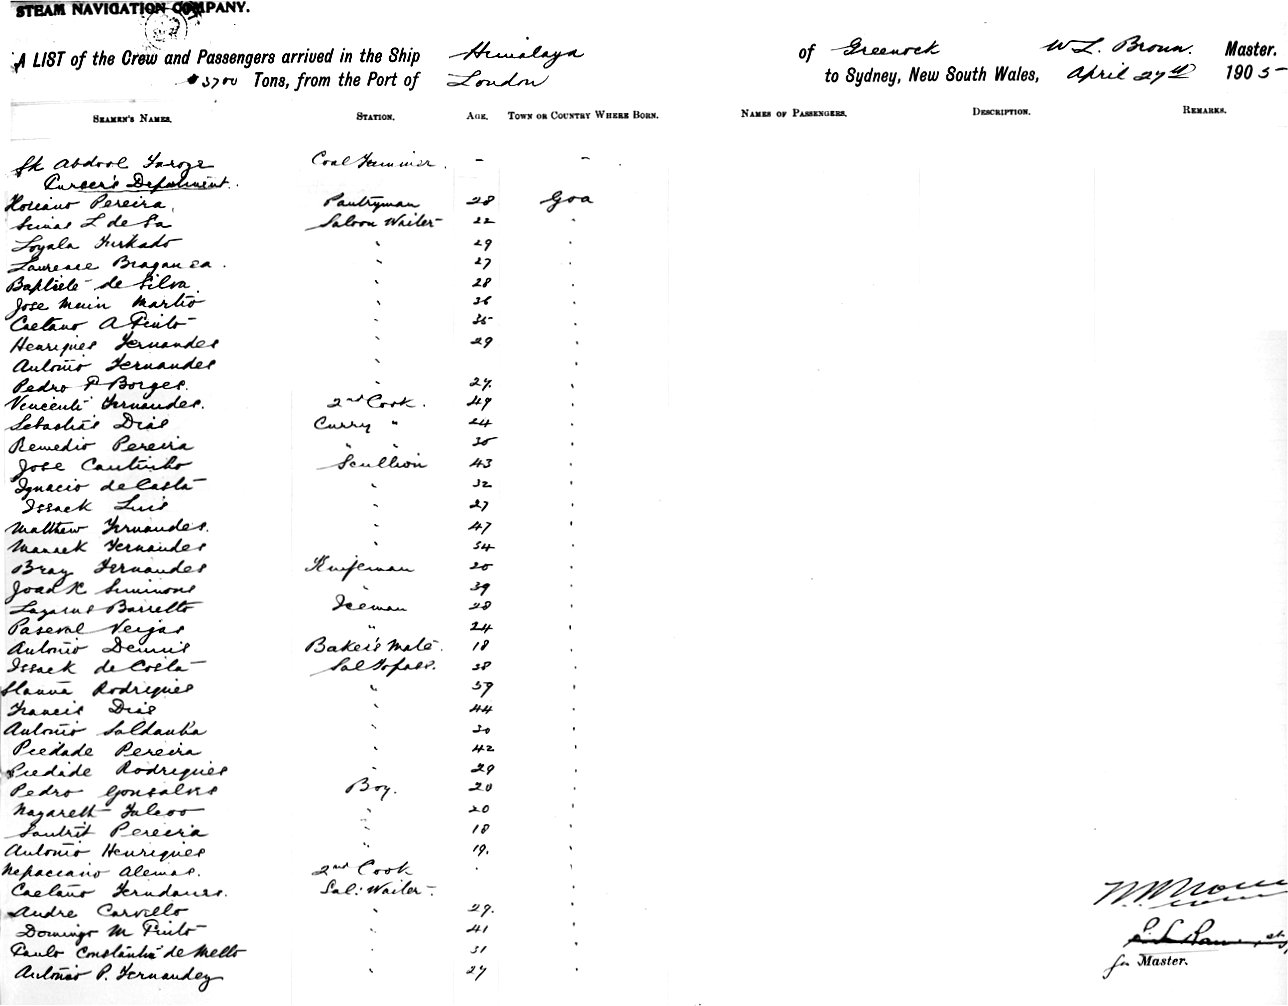 STEAM NAVIGATION COMPANY.
A LIST of the Crew and Passengers arrived in the Ship Himalaya of Greenock W L Brown. Master.
3700 Tons, from the Port of London to Sydney, New South Wales, April 27th 1905
SEAMEN'S NAMES. STATION. AGE. TOWN OR COUNTRY WHERE BORN. NAMES OF PASSENGERS. DESCRIPTION. REMARKS.
Sk Abdool Coal Trimmer. - - .
Purser's Department.
Pereira. Pantryman 28 Goa
L de Sa Saloon Waiter 22 "
Loyala Furkado " 29 "
Laurence Braganza. " 27 "
Baptiste de Silva. " 28 "
Jose Martio " 36 "
Caetano A Pinto " 35 "
Henriques Fernandes " 29 "
Antonio Fernandes " "
Pedro P Borges. " 27. "
Vencenti Fernandes. 2nd Cook. 49 "
Dias Curry " 24 "
Remedio Pereira " " 30 "
Jose Coutinho Scullion 43 "
Ignacio de Costa " 32 "
Issack Luis " 27 "
Matthew Fernandes. " 47 "
Fernandes " 34 "
Bray Fernandes Knifeman 20 "
Simmons " 39 "
Lazarus Barretto Iceman 28 "
Veigas " 24 "
Antonio Dennis Baker's Mate. 18 "
Issack de Costa Sal Topass. 38 "
Rodrigues " 39 "
Francis Dias " 44 "
Antonio Saldanha " 30 "
Piedade Pereira " 42 "
Piedade Rodrigues " 29 "
Pedro Gonsalves Boy. 20 "
Nazareth " 20 "
Pereira " 18 "
Antonio Henriques " 19. "
Alemas. 2nd Cook " "
Caetano Fernandes. Sal: Waiter "
Andre Carvello " 29. "
Domingo M Pinto " 41 "
Paulo Constantia de Mello " 31 "
Antonio P. Fernandez " 27 "
for Master.